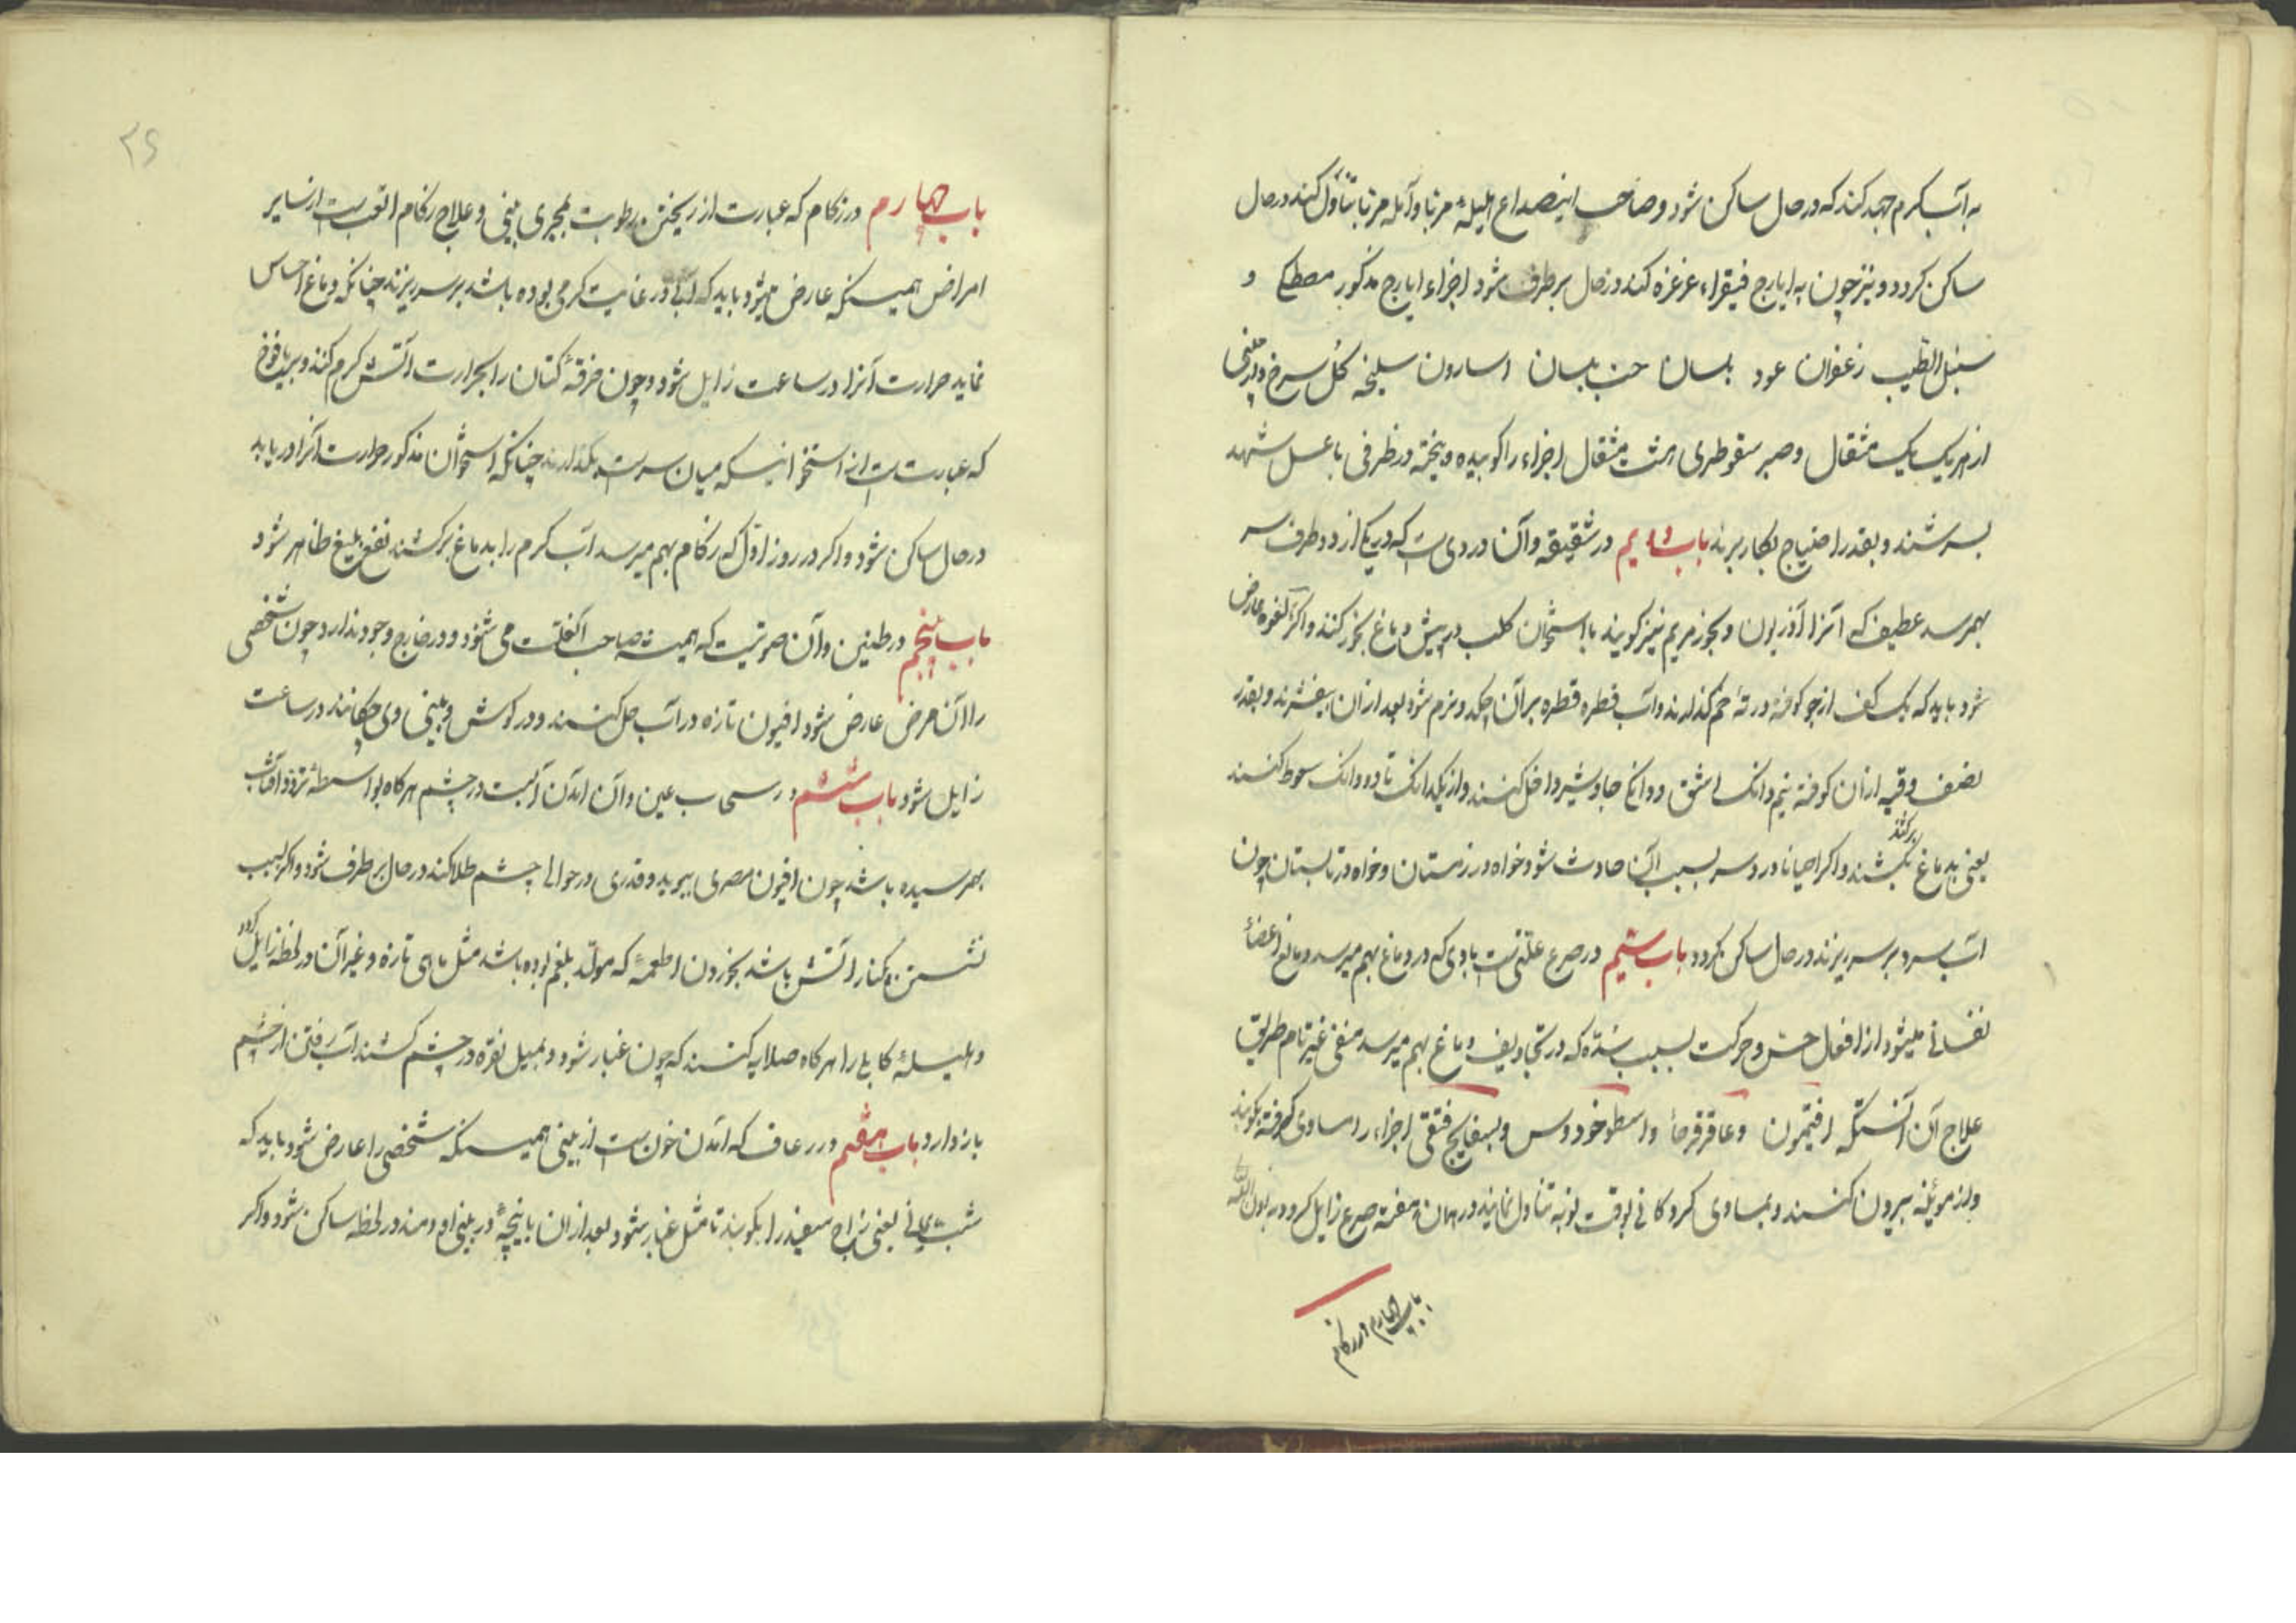 به آب گرم جهد کند که در حال ساکن شود و صاحب اینصداع هلیلهٔ مربا و آمله مربا تناول کند در حال
ساکن کردد و نیز چون به ایارج فیقراء غرغره کند در حال برطرف شود اجزاء ایارج مذکور مصطکی و
سنبل الطیب زعفران عود بلسان حب بلسان اسارون سلیخه کل سرخ دارچینی
از هر یک یک مثقال و صبر سقوطری هشت مثقال اجزاء را کوبیده و پخته در ظرفی با عسل شهد
بسرشند و بقدر احتیاج بکار برند باب دویم در شقیقه و آن دردی است که در یکی از دو طرف سر
بهم رسد عطیف که آنرا آذربون و بخور مریم نیز کویند با استخوان کلب در پیش دماغ بخور کنند و اکر لقوه عارض
شود باید که یک کف از جو کوفته در خم کذارند و آب قطره قطره بر آن چکد و نرم شود بعد از آن بیفشرند و بقدر
نصف وقیه از آن کوفته نیم دانک اشق و دانکی جاوشیر داخل کنند و از یکدانک تا دو دانک سعوط کنند
یعنی بدماغ بکشند و اکر احیانا درد سر بسبب آن حادث شود خواه در زمستان و خواه در تابستان چون
برکشند
آب سرد بر سر ریزند در حال ساکن کردد باب سیم در صرع علتی است بادی که در دماغ بهم میرسد و مانع اعضاء
نفسانی میشود از افعال حس و حرکت بسبب سده که در تجاویف دماغ بهم میرسد منفی غیر تام طریق
علاج آن آنستکه افتیمون و عاقرقرحا و اسطوخودوس و بسفایج فستقی اجزاء را مساوی کرفته بکوبند
و از موئینه بیرون کنند و بمساوی کرد کافی بوقت نوبه تناول نمایند در همان هفته صرع زایل کردد بعون الله تعالی
باب چهارم در زکام
۲۶
باب چهارم در زکام که عبارت از ریختن رطوبت بمجری بینی و علاج زکام اتعب است از سایر
امراض همینکه عارض میشود باید که آبی در غایت کرمی بوده باشد بر سر ریزند چنانکه دماغ احساس
نماید حرارت آنرا در ساعت زایل شود و چون خرقهٔ کتان را بحرارت آتش کرم کنند و بر یافوخ
که عبارتست از استخوانیکه میان سر است بکذارند چنانکه استخوان مذکور حرارت آنرا دریابد
در حال ساکن شود و اکر در روز اول که زکام بهم میرسد آب کرم را بدماغ برکشند نفع بلیغ ظاهر شود
باب پنجم در طنین و آن صوتیست که همیشه صاحب آنعلت می شنود و در خارج وجود ندارد چون شخصی
را آن مرض عارض شود افیون تازه در آب حل کنند و در کوش و بینی وی چکانند در ساعت
زایل شود باب ششم در سحاب عین و آن آمدن آبست در چشم هرکاه بواسطهٔ تردد آفتاب
بهم رسیده باشد چون افیون مصری ببوید و قدری در حوالی چشم طلا کند در حال برطرف شود و اکر بسبب
نشستن بکنار آتش باشد بخوردن اطعمهٔ که مولد بلغم بوده باشد مثل ماهی تازه و غیر آن در لحظه زایل کردد
و هلیلهٔ کابلی را هرکاه صلایه کنند که چون غبار شود و بمیل نقره در چشم کشند آب رفتن از چشم
باز دارد باب هفتم در رعاف که آمدن خون است از بینی همینکه شخصی را عارض شود باید که
شب یمانی یعنی زاج سفید را بکوبند تا مثل غبار شود بعد از آن با نیچهٔ در بینی او دمند در لحظه ساکن شود و اکر